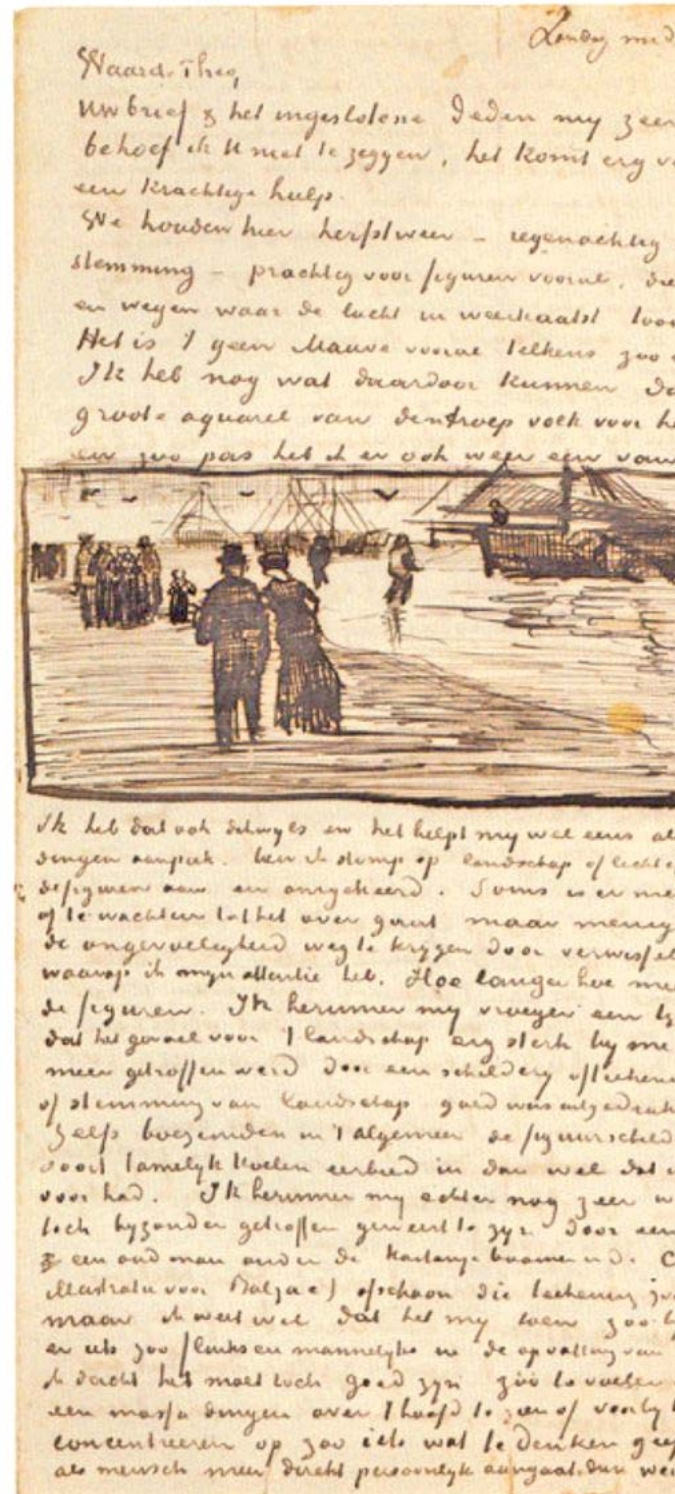 Zondag mid
Waarde Theo,
Uw brief & het ingeslotene deden my zeer
behoef ik U niet te zeggen, het komt erg
een krachtige hulp.
We houden hier herfstweer – regenachtig
stemming – prachtig voor figuren vooral, die
en wegen waar de lucht in weerkaatst
Het is 't geen Mauve vooral telkens zoo
Ik heb nog wat daardoor kunnen
groote aquarel van den troep volk voor
en zoo pas heb ik er ook weer een van
Ik heb dat ook dikwyls en het helpt my wel eens
dingen aanpak. ben ik stomp op landschap of
de figuren aan en omgekeerd. Soms is er
of te wachten tot het over gaat maar menig
de ongevoeligheid weg te krygen door
waarop ik myn attentie heb. Hoe langer hoe
de figuren. Ik herinner my vroeger een
dat het gevoel voor 't landschap erg sterk by me
meer getroffen werd door een schildery of
of stemming van landschap goed was
Zelfs boezemden in 't algemeen de
soort tamelyk koelen eerbied in dan wel dat
voor had. Ik herinner my echter nog zeer
toch byzonder getroffen geweest te zyn door een
een oud man onder de Kastanje boomen
illustratie voor Balzac) ofschoon die teekening
maar ik weet wel dat het my toen zoo
er iets zoo flinks en mannelyks in de opvatting van
ik dacht het moet toch goed zyn zóó te voelen
een massa dingen over 't hoofd te zien of
concentreeren op zoo iets wat te denken
als mensch meer direkt persoonlyk aangaat dan